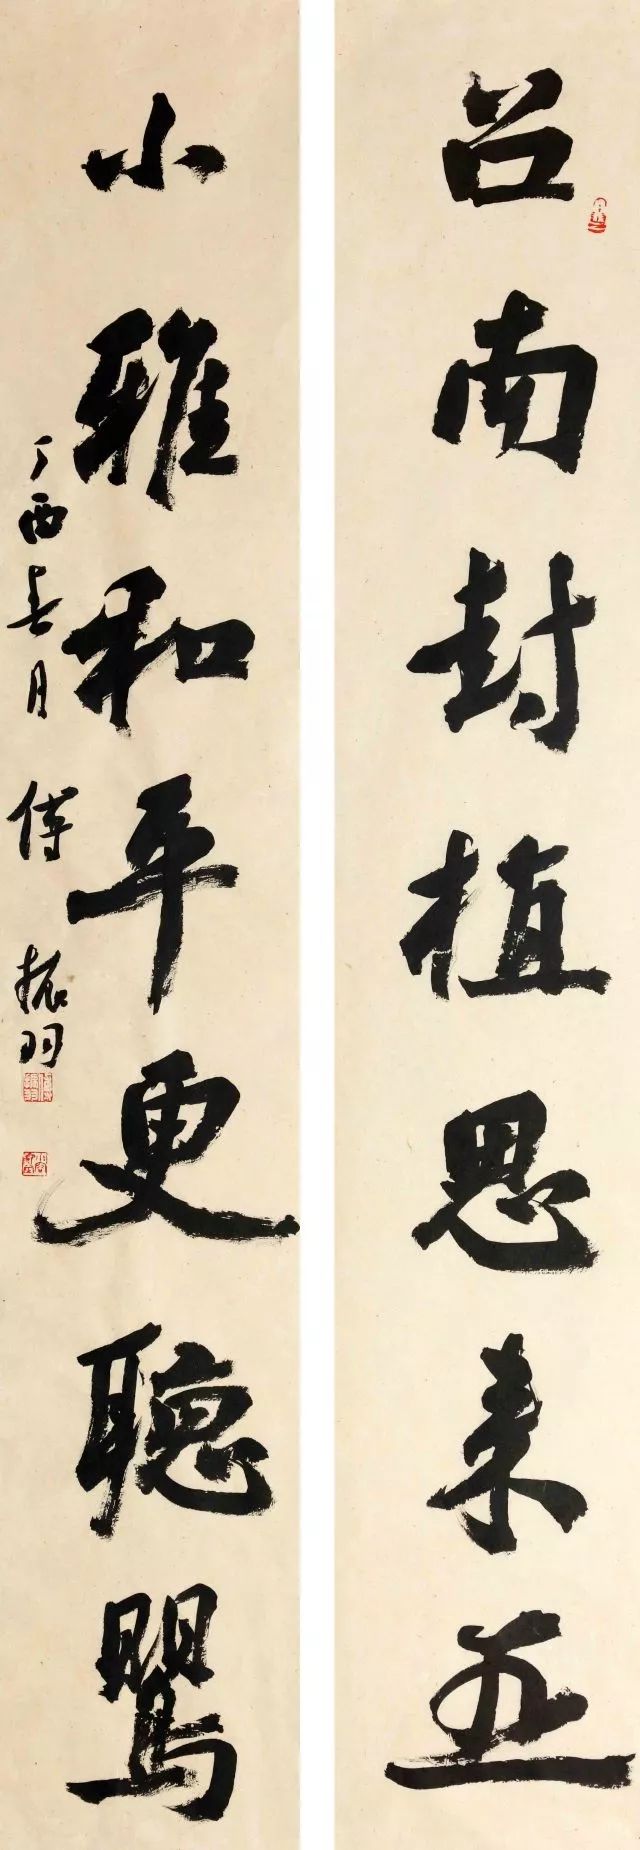 召南封植思来
小雅和平更聽鸎
丁酉春月 傅振羽